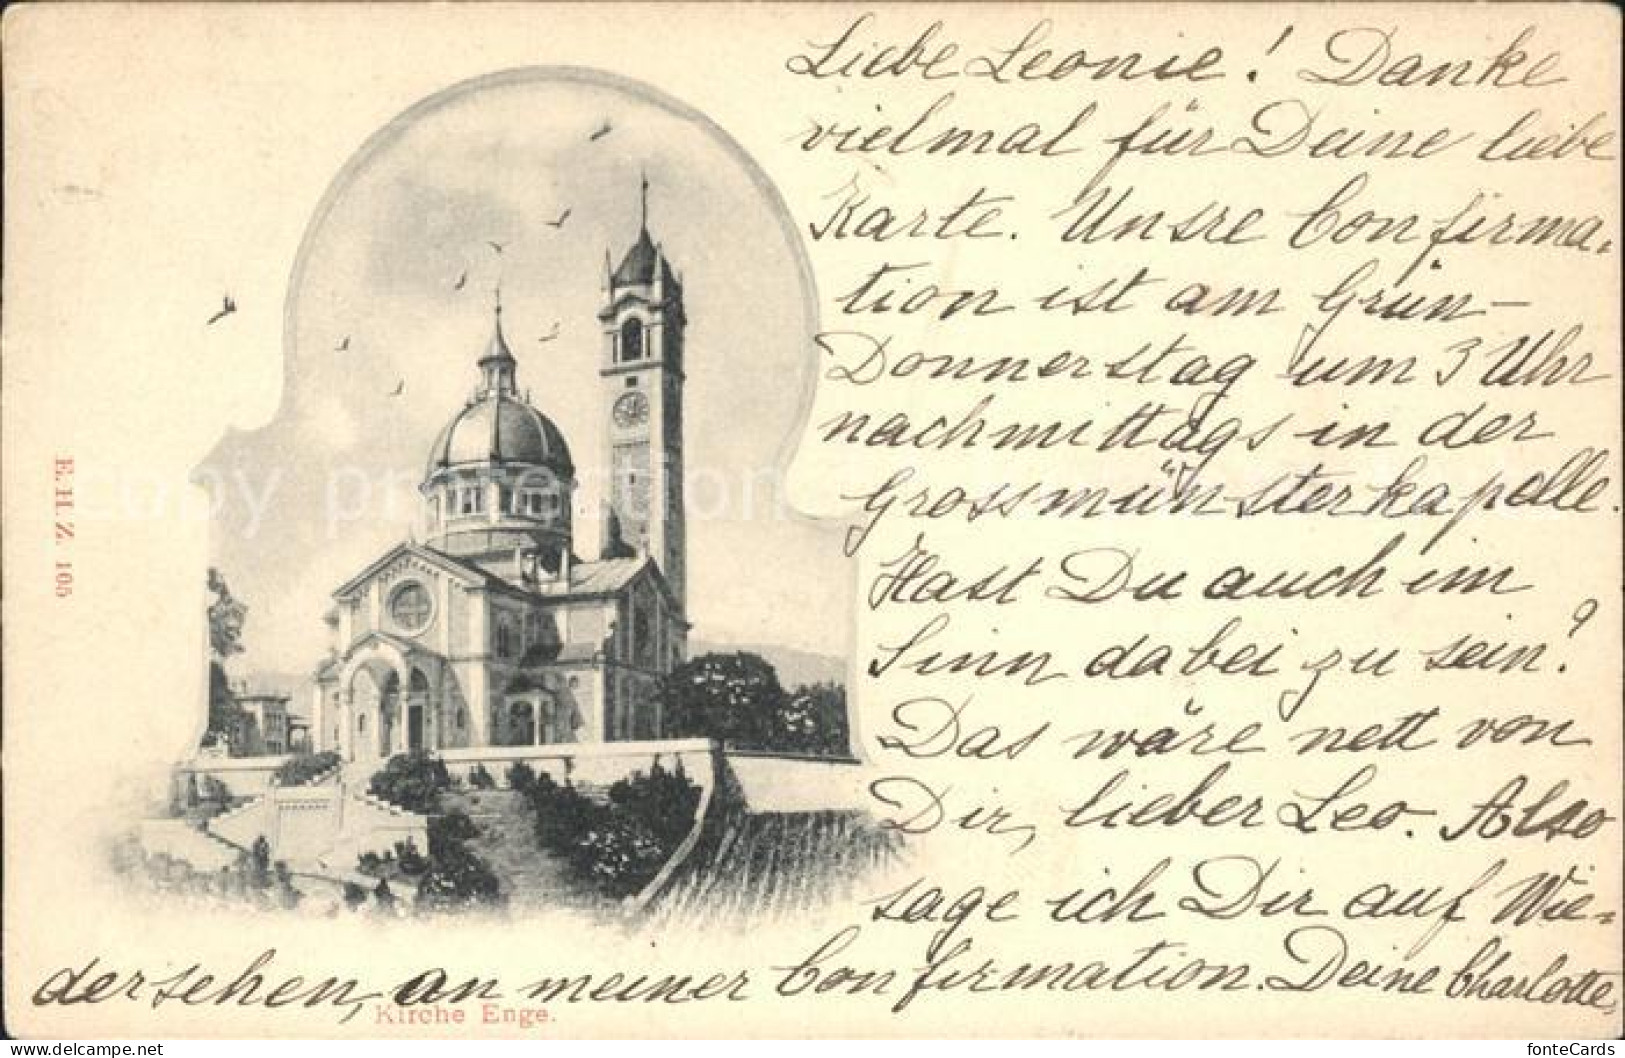 Liebe Leonie! Danke
vielmal für Deine liebe
Karte. Unsre Confirma=
tion ist am Grün-
Donnerstag um 3 Uhr
nachmittags in der
Grossmünsterkapelle.
Hast Du auch im
Sinn dabei zu sein?
Das wäre nett von
Dir, lieber Leo. Also
sage ich Dir auf Wie=
dersehen, an meiner Confirmation. Deine Charlotte
Kirche Enge.
E. H. Z. 105
copy protection
www.delcampe.net
fonteCards